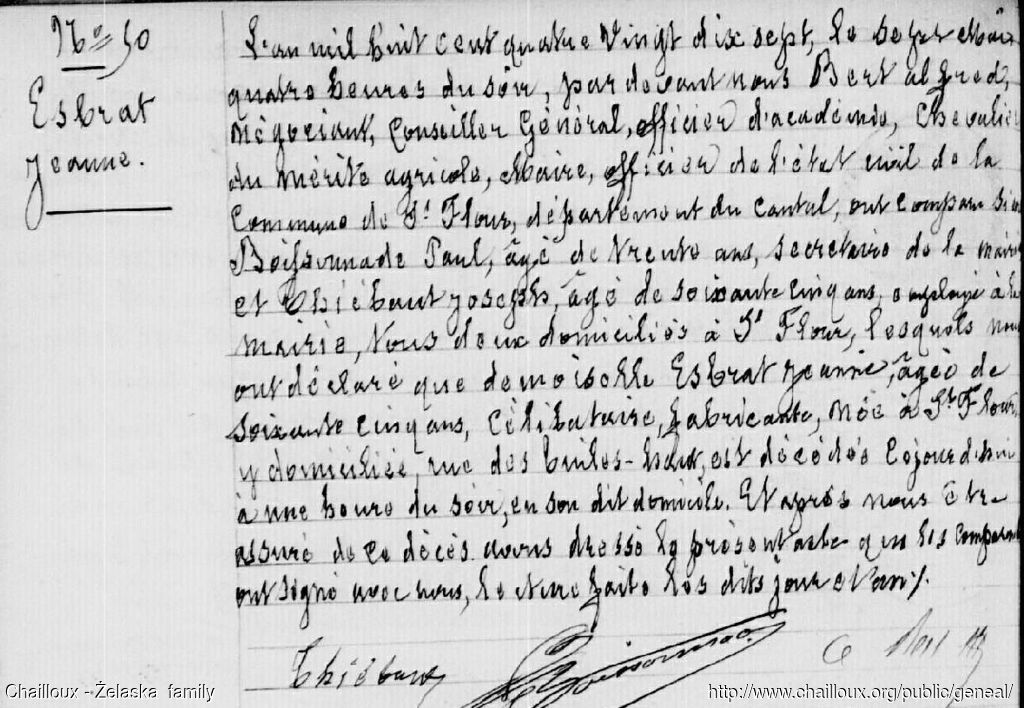 No 50
Esbrat
Jeanne.
L'an mil huit cent quatre vingt dix sept, le sept Mai
quatre heures du soir, par devant nous Bert alfred,
Négociant, Conseiller Général, officier d'académie, Chevalier
du Mérite agricole, Maire, officier de l'état civil de la
Commune de St Flour, département du Cantal, ont comparu
Boissonnade Paul, âgé de trente ans, secretaire de la mairie
et Thiébaut Joseph, âgé de soixante cinq ans, employé à la
mairie, tous deux domiciliés à St Flour, lesquels nous
ont déclaré que demoiselle Esbrat Jeanne, âgée de
soixante cinq ans, Célibataire, fabricante, née à St Flour,
y domiciliée, rue des tuiles-haut, est décédée cejourd'hui
à une heure du soir, en son dit domicile. Et après nous être
assuré de ce décès avons dressé le présent acte que les comparants
ont signé avec nous, lecture faite les dits jour et an ./.
Thiébaut
Boissonnade
Chailloux - Żelaska family
http://www.chailloux.org/public/geneal/